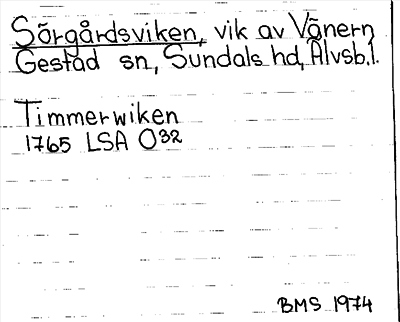 Sörgårdsviken, vik av Vänern
Gestad sn, Sundals hd, Älvsb.l.
Timmerwiken
1765 LSA O32
BMS 1974